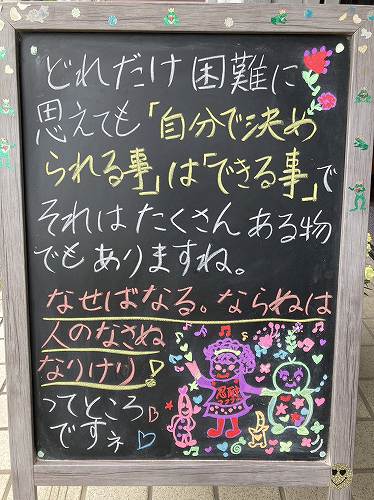 どれだけ困難に
思えても「自分で決め
られる事」は「できる事」で
それはたくさんある物
でもありますね。
なせばなる。ならねは
人のなさぬ
なりけり
ってところ
ですネ
忍耐